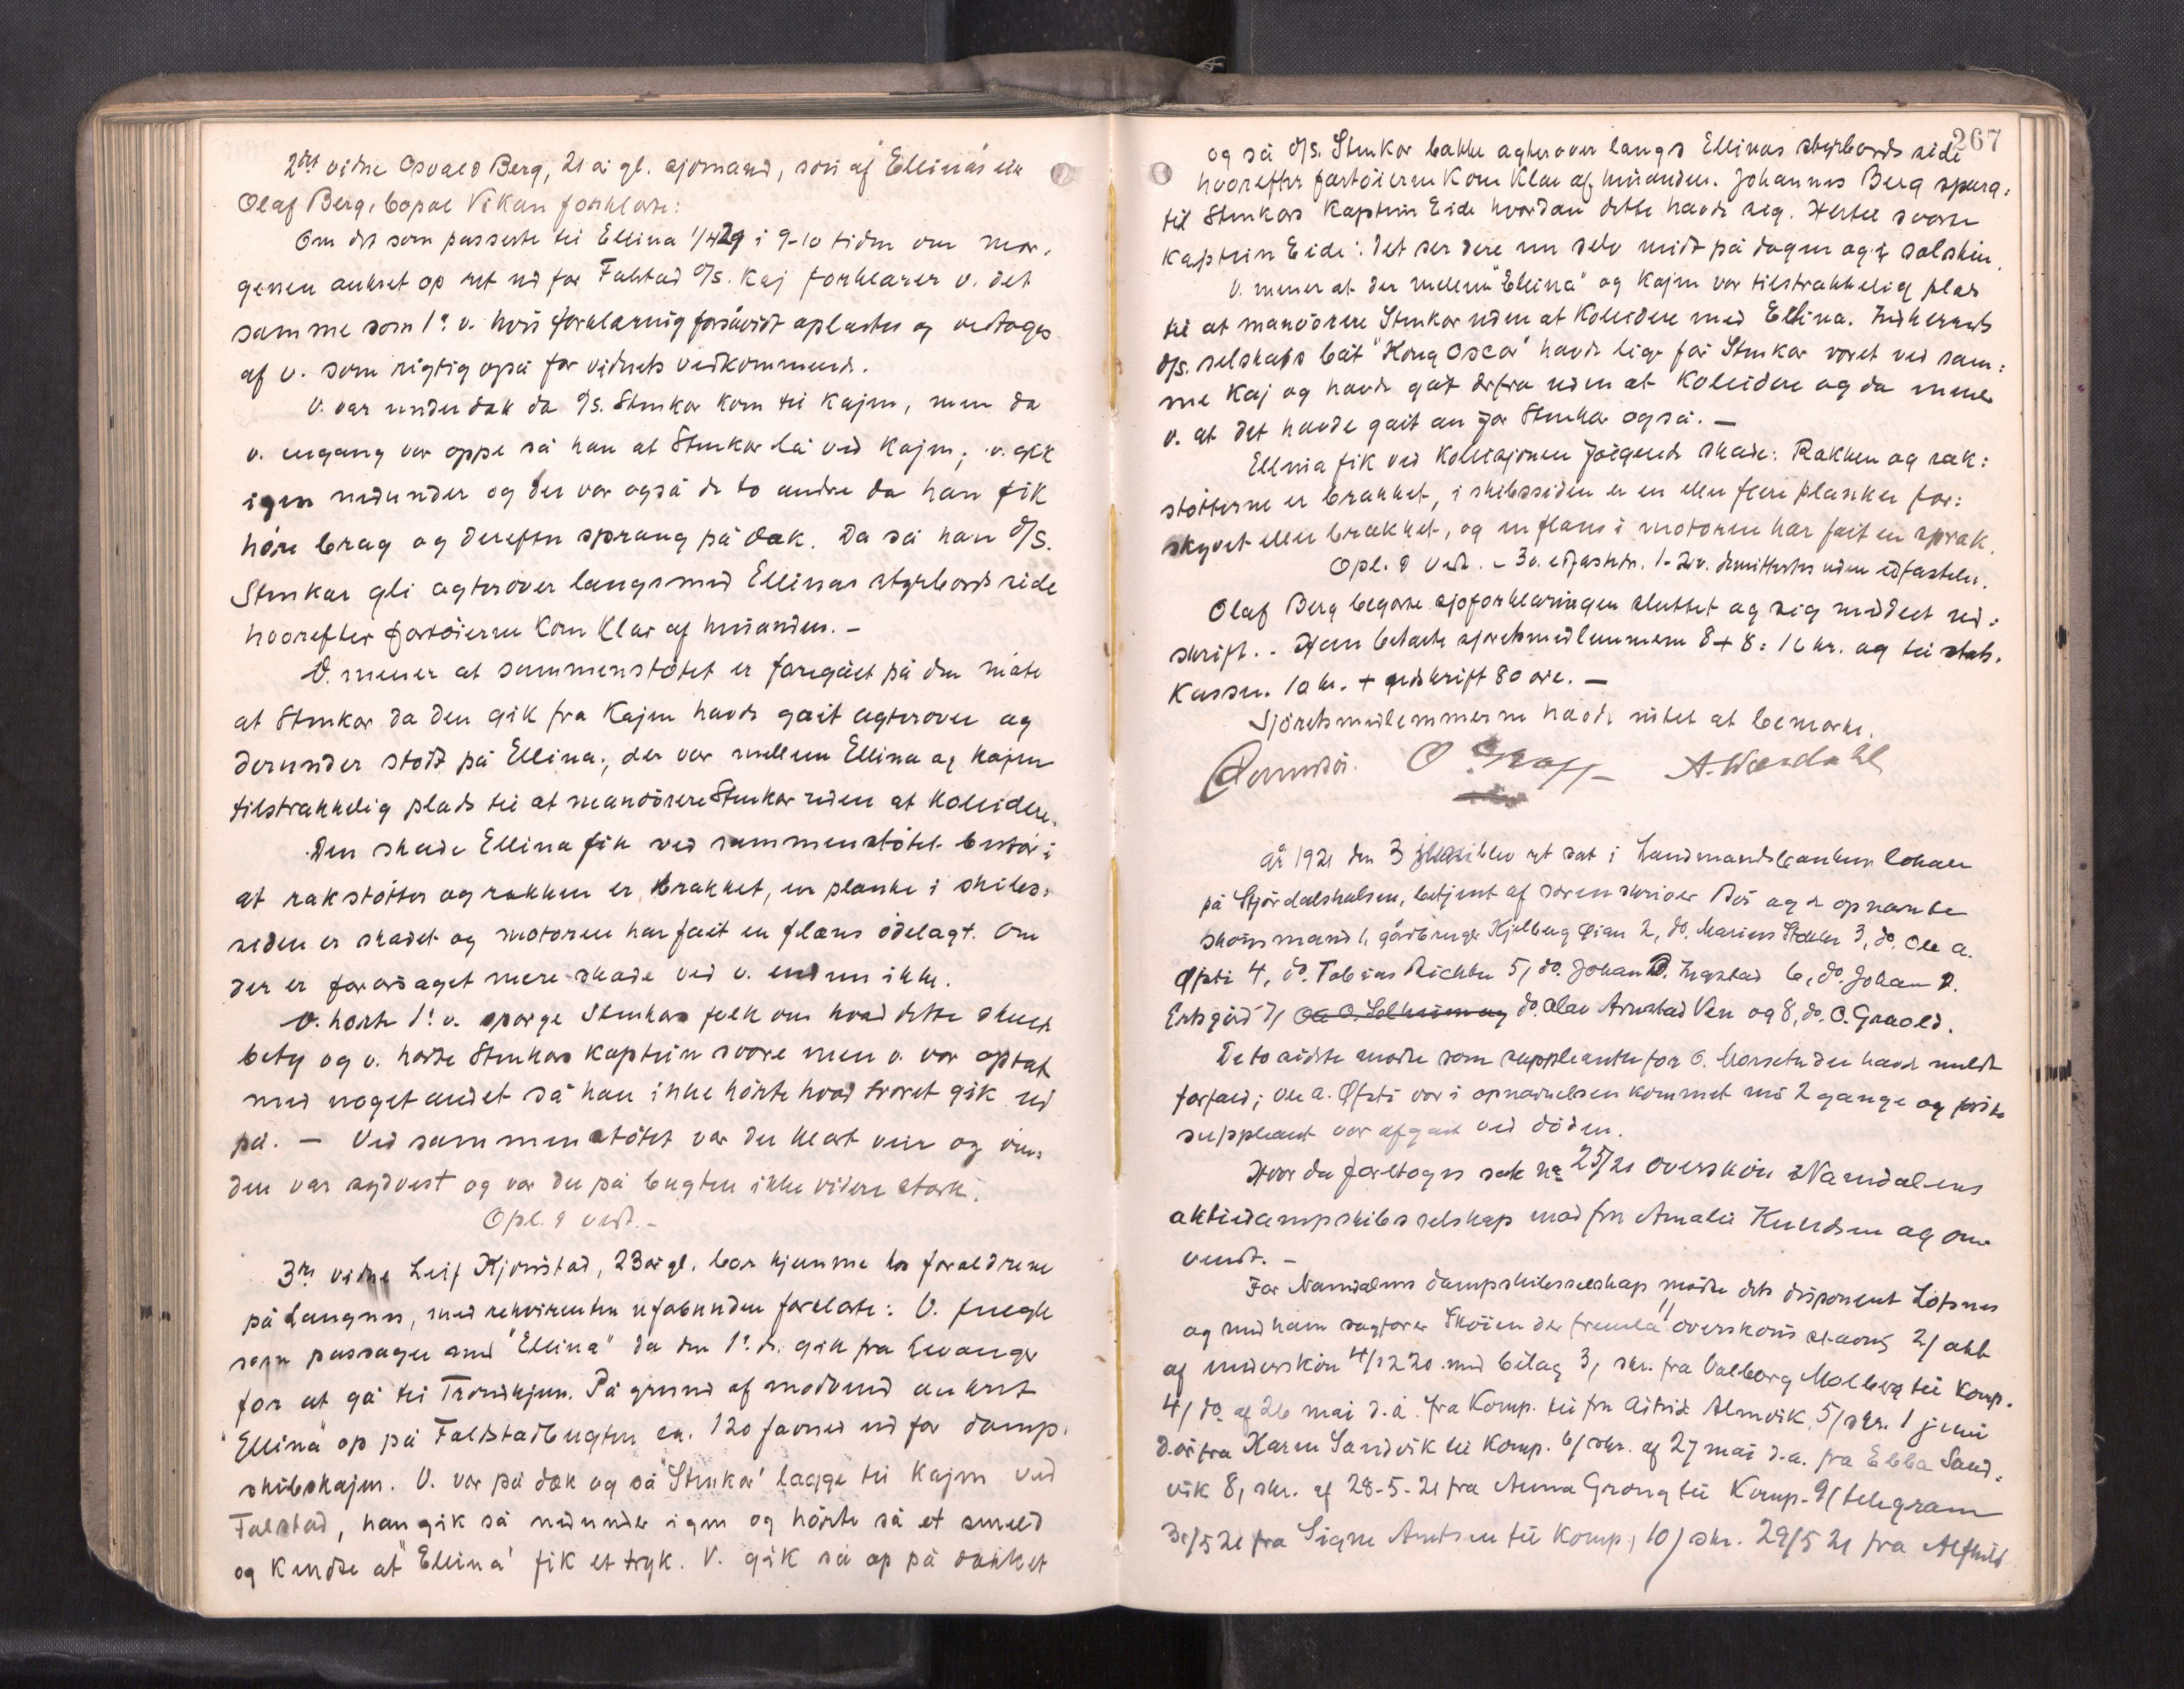 2det vidne Osvald Berg, 21 år gl. sjømand, søn af "Ellina"s eier
Olaf Berg, bopæl Vikan forklarte:
Om det som passerte til Ellina 1/4 21 i 9-10 tiden om mor-
genen ankret op ret ud for Falstad d/s. kaj forklarer v. det
samme som 1ste v. hvis forklaring forsåvidt oplæstes og vedtages
af v. som rigtig også for vidnets vedkommende.
V. var under dæk da d/s. Stenkær kom til kajen, men da
v. engang var oppe så han at Stenkær lå ved kajen; v. gik
igen nedunder og der var også de to andre da han fik
høre brag og derefter sprang på dæk. Da så han d/s.
Stenkær gli agterover langs med Ellinas styrbords side
hvorefter fartøierne kom klar af hinanden. -
V. mener at sammenstøtet er foregået på den måte
at Stenkær da den gik fra kajen havde gåit agterover og
derunder stødt på Ellina; der var mellem Ellina og kajen
tilstrækkelig plads til at manøvrere Stenkær uden at kollidere.
Den skade Ellina fik ved sammenstøtet består i
at rækstøtter og rækken er brækket, en planke i skibs-
siden er skadet og motoren har fåit en flæns ødelagt. Om
der er forårsaget mere skade ved v. endnu ikke.
V. hørte 1ste v. spørge Stenkærs folk om hvad dette skulde
bety og v. hørte Stenkærs kaptein svare men v. var optat
med noget andet så han ikke hørte hvad svaret gik ud
på. — Ved sammenstøtet var der klart veir og vin-
den var sydvest og var der på bugten ikke videre stærk.
Opl. & vedt. -
3dje vidne Leif Hjørnstad, 23 år gl. bor hjemme hos forældrene
på Langnes, med rekvirenten ubeslægtet forklarte: V. fulgte
som passager med "Ellina" da den 1ste ds. gik fra Levanger
for at gå til Trondhjem. På grund af modvind ankret
"Ellina" op på Falstadbugten ca. 120 favner ud for damp-
skibskajen. V. var på dæk og så "Stenkær" lægge til kajen ved
Falstad, han gik så nedunder igen og hørte så et smeld
og kendte at "Ellina" fik et tryk. V. gik så op på dækket
267
og så d/s. Stenkær bakke agterover langs Ellinas styrbords side
hvorefter fartøierne kom klar af hinanden. Johannes Berg spurg-
te Stenkærs kaptein Eide hvordan dette havde sig. Hertil svarte
kaptein Eide: Det ser dere nu selv midt på dagen og i solskin.
V. mener at der mellem "Ellina" og kajen var tilstrækkelig plads
til at manøvrere Stenkær uden at kollidere med Ellina. Indherreds
d/s. selskabs båt "Kong Oscar" havde lige før Stenkær været ved sam-
me kaj og havde gåt derfra uden at kollidere og da mener
v. at det havde gåit an for Stenkær også. —
Ellina fik ved kollisjonen følgende skade: Rækken og ræk-
støtterne er brækket, i skibssiden er en eller flere planker for-
skyvet eller brækket, og en flæns i motoren har fåit en spræk.
Opl. & vedt. - 3 v. edfæstedes. 1-2 v. demittertes uden edfæstelse.
Olaf Berg begærte sjøforklaringen sluttet og sig meddelt ud-
skrift. - Han betalte sjøretsmedlemmerne 8 + 8 = 16 kr. og til stats-
kassen 10 kr. + gjenskrift 80 øre. —
Sjøretsmedlemmerne havde intet at bemærke.
A. Wærdahl
År 1921 den 3 juni blev ret sat i Landmandsbankens lokale
på Stjørdalshalsen, betjent af sorenskriver Bøe og 8 opnævnte
skønsmænd 1, gårdbruger Kjelberg Øian 2, do. Marius Stokke 3, do. Ole A.
Øfsti 4, do. Tobias Richter 5, do. Johan D. Ingstad 6, do. Johan P.
Ertsgård 7, do. Olav Arnstad Ven og 8, do. O. Graold.
De to sidste møtte som suppleanter for O. Morset der havde meldt
forfald; Ole A. Øfsti var i opnævnelsen kommet ind 2 gange og første
suppleant var afgået ved døden.
Hvor da foretoges sak no 25/21 overskøn: Namdalens
aktiedampskibsselskap mod fru Amalie Knudsen og om-
vendt. —
For Namdalens dampskibsselskap møtte dets disponent Løfsnes
og med ham sagfører Skøien der fremla 1/ overskøns stevning 2/ akt
af underskøn 4/12 20 med bilag 3, skr. fra Valborg Molberg til komp.
4/ do af 26 mai d.å. fra komp. til frk Astrid Almvik, 5/ skr. 1 juni
d.å. fra Karen Sandvik til komp. 6/ skr. af 27 mai d.å. fra Ebba Sand-
vik 8, skr. af 28-5-21 fra Anna Grong til komp. 9/ telegram
31/5 21 fra Signe Arntsen til komp, 10/ skr. 29/5 21 fra Alfhild